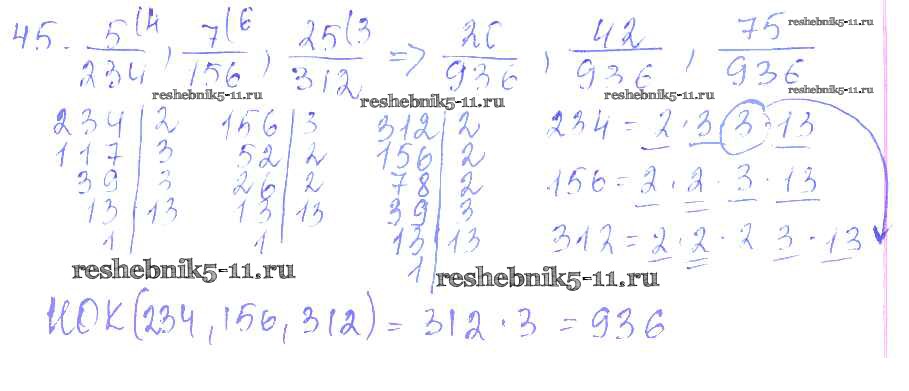 45. 5(4/234, 7(6/156, 25(3/312 => 20/936, 42/936, 75/936
reshebnik5-11.ru
reshebnik5-11.ru reshebnik5-11.ru reshebnik5-11.ru
234 | 2 156 | 3 312 | 2 234 = 2 · 3 · 3 · 13
117 | 3 52 | 2 156 | 2
39 | 3 26 | 2 78 | 2 156 = 2 · 2 · 3 · 13
13 | 13 13 | 13 39 | 3
1 | 1 | 13 | 13 312 = 2 · 2 · 2 3 · 13
1 |
reshebnik5-11.ru reshebnik5-11.ru
НОК(234, 156, 312) = 312 · 3 = 936